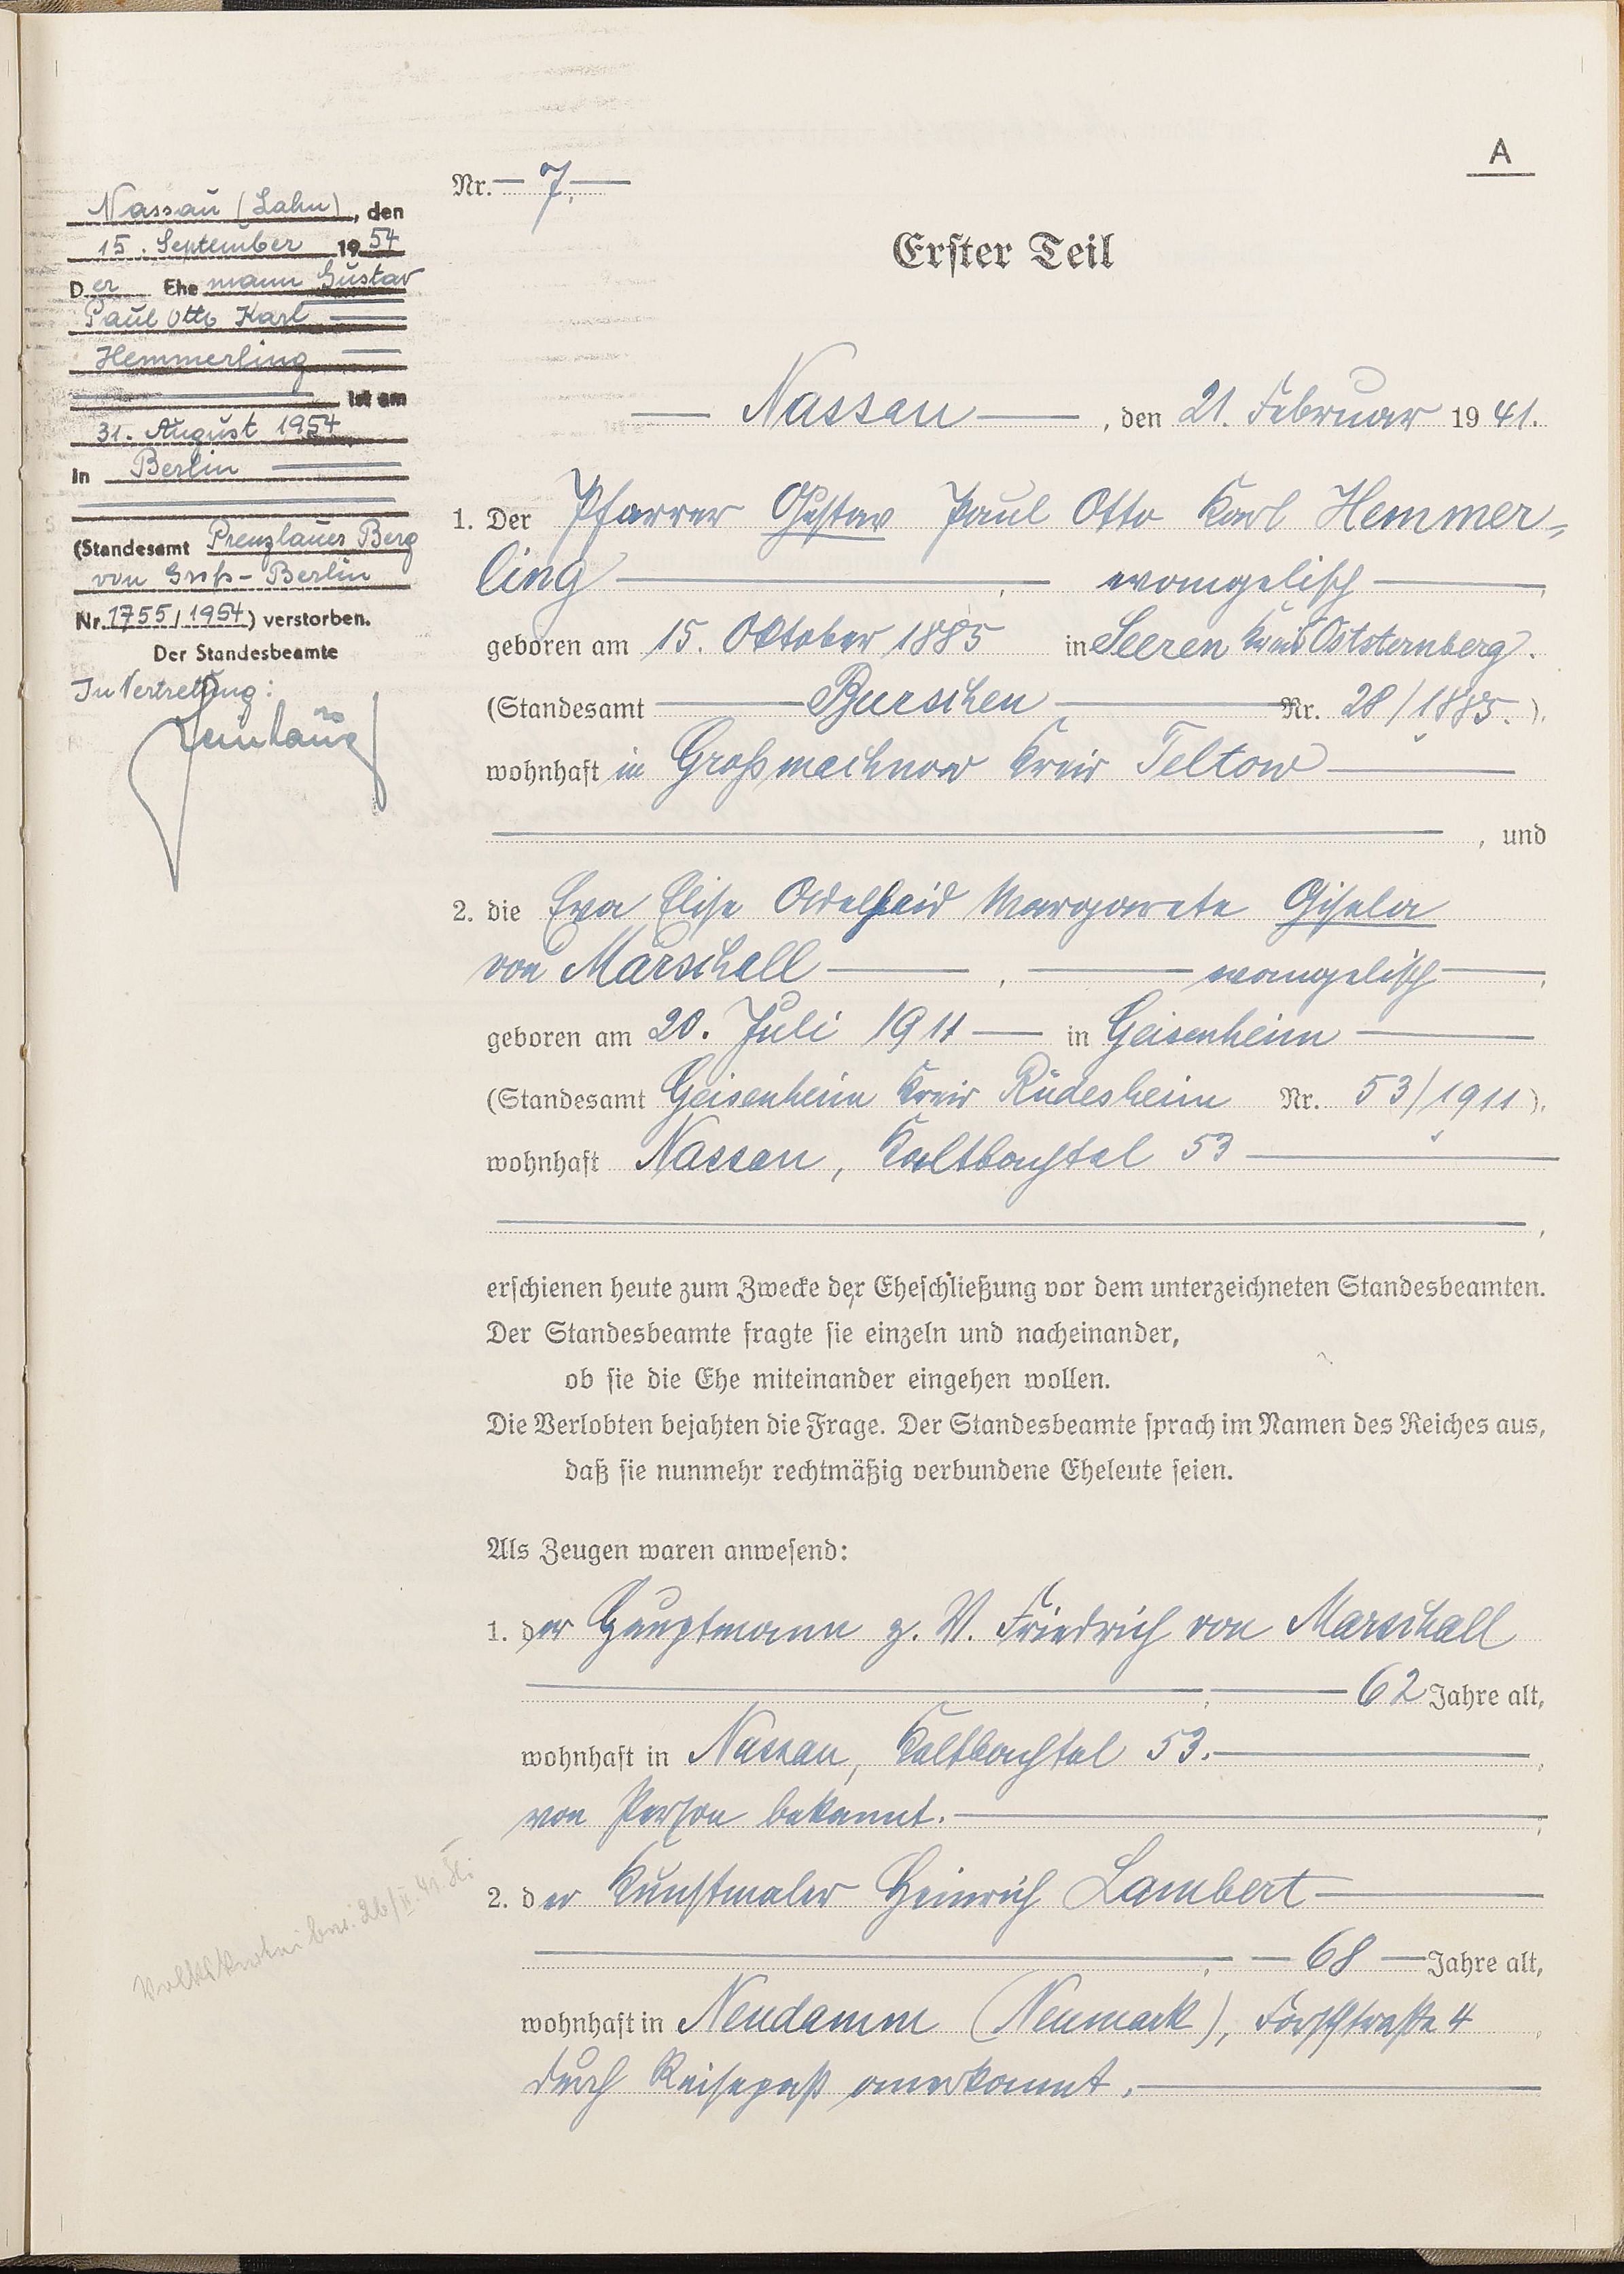 A
Nr. 7.
Erster Teil
Nassau (Lahn), den
15. September 1954
Der Ehemann Gustav
Paul Otto Karl
Hemmerling
ist am
31. August 1954
in Berlin
(Standesamt Prenzlauer Berg
von Groß-Berlin
Nr. 1755/1954) verstorben.
Der Standesbeamte
In Vertretung:
Nassau, den 21. Februar 1941.
1. Der Pfarrer Gustav Paul Otto Karl Hemmer-
ling, evangelisch,
geboren am 15. Oktober 1885 in Seeren Kreis Oststernberg.
(Standesamt Burschen Nr. 28/1885.),
wohnhaft in Großmachnow Kreis Teltow
, und
2. die Eva Elise Adelheid Margarete Gisela
von Marschall, evangelisch,
geboren am 20. Juli 1911 in Geisenheim
(Standesamt Geisenheim Kreis Rüdesheim Nr. 53/1911),
wohnhaft Nassau, Kaltbachtal 53
,
erschienen heute zum Zwecke der Eheschließung vor dem unterzeichneten Standesbeamten.
Der Standesbeamte fragte sie einzeln und nacheinander,
ob sie die Ehe miteinander eingehen wollen.
Die Verlobten bejahten die Frage. Der Standesbeamte sprach im Namen des Reiches aus,
daß sie nunmehr rechtmäßig verbundene Eheleute seien.
Als Zeugen waren anwesend:
1. der Hauptmann z. V. Friedrich von Marschall
, 62 Jahre alt,
wohnhaft in Nassau, Kaltbachtal 53.,
von Person bekannt.
2. der Kunstmaler Heinrich Lambert
, 68 Jahre alt,
wohnhaft in Neudamm (Neumark), Forststraße 4,
durch Reisepaß anerkannt.